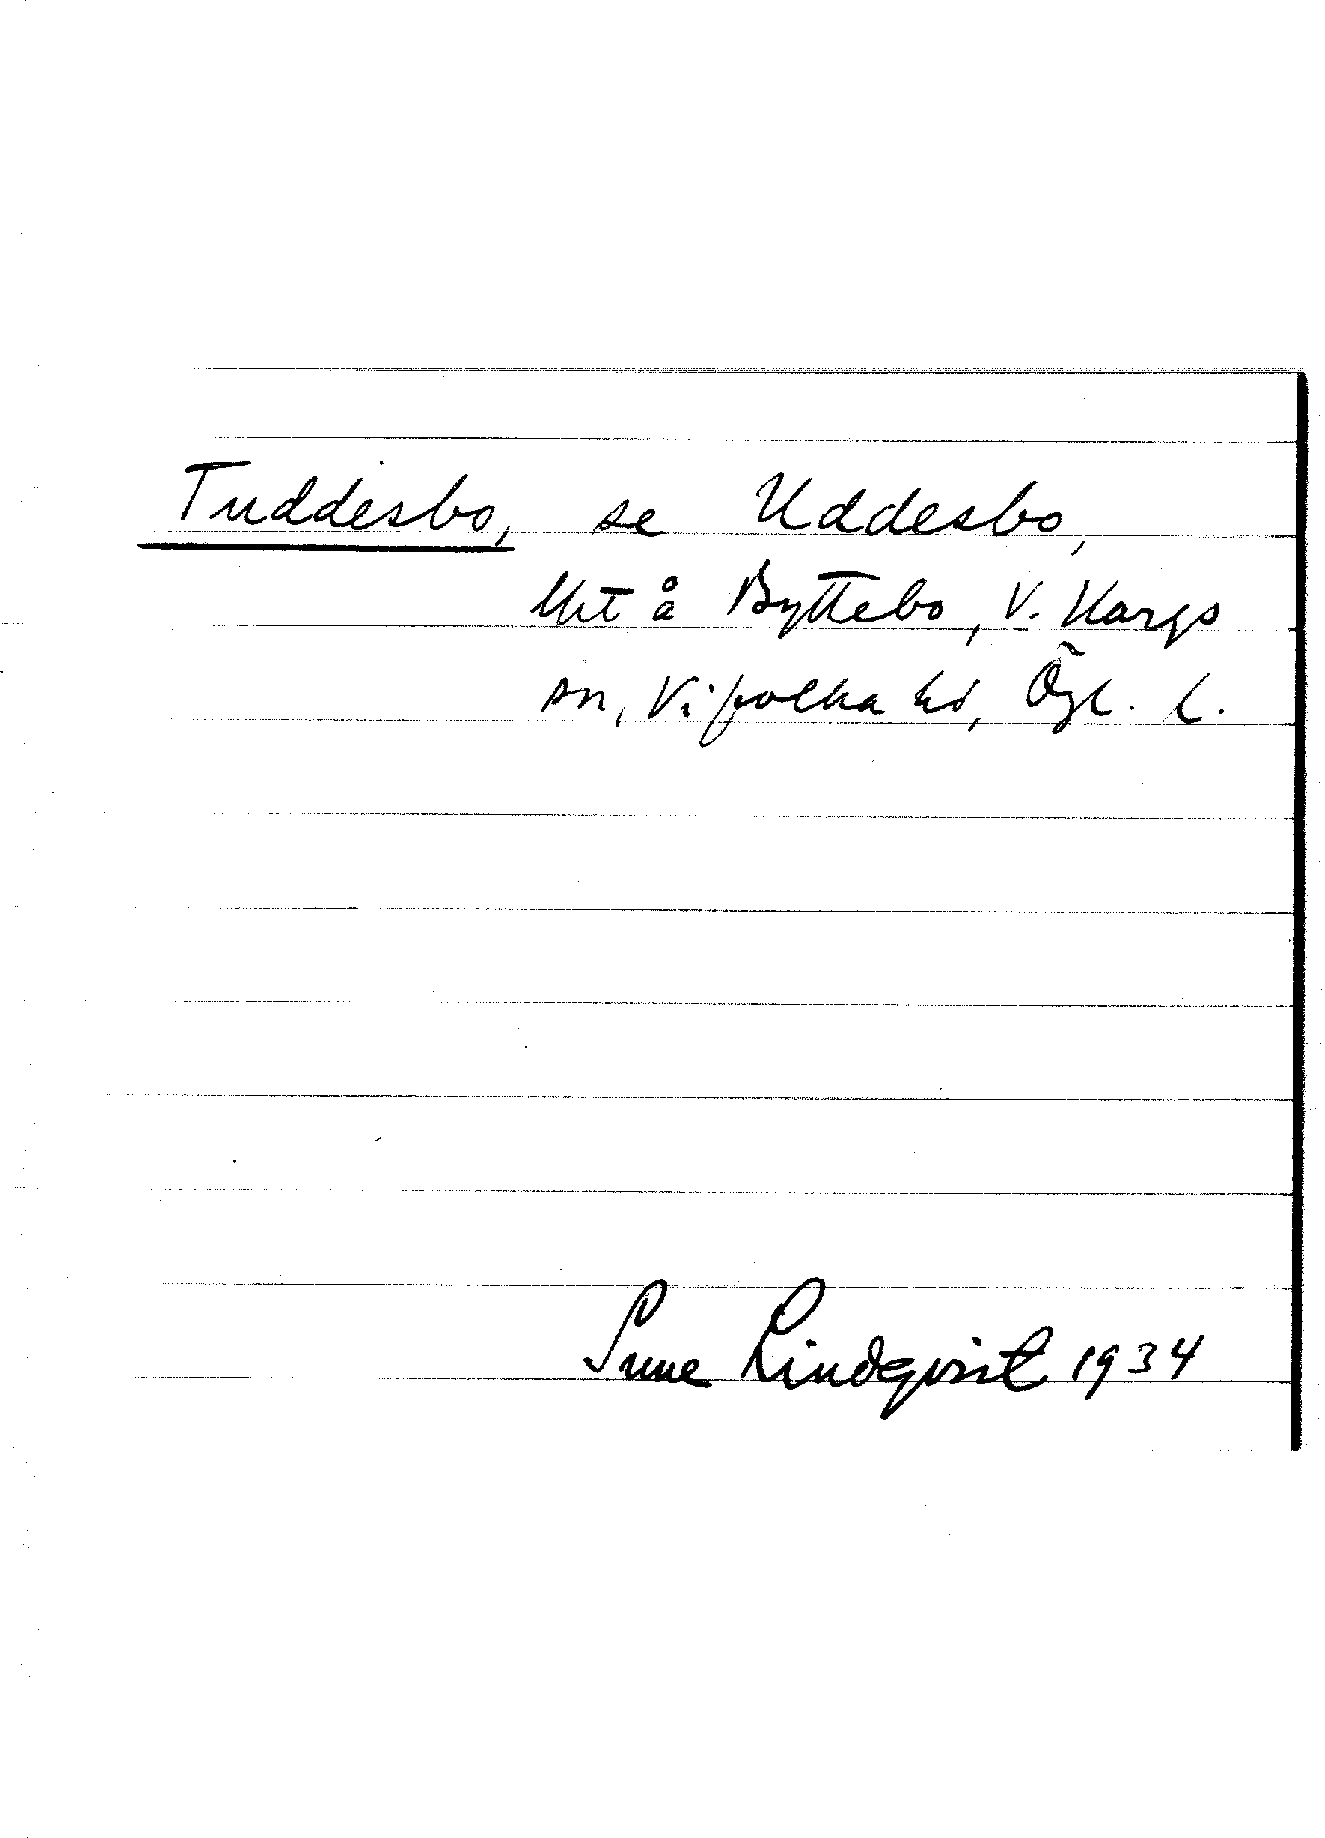 Tuddesbo, se Uddesbo,
lht å Byttebo, V. Hargs
sn, Vifolka hd, Ögl. l.
Sune Lindqvist 1934